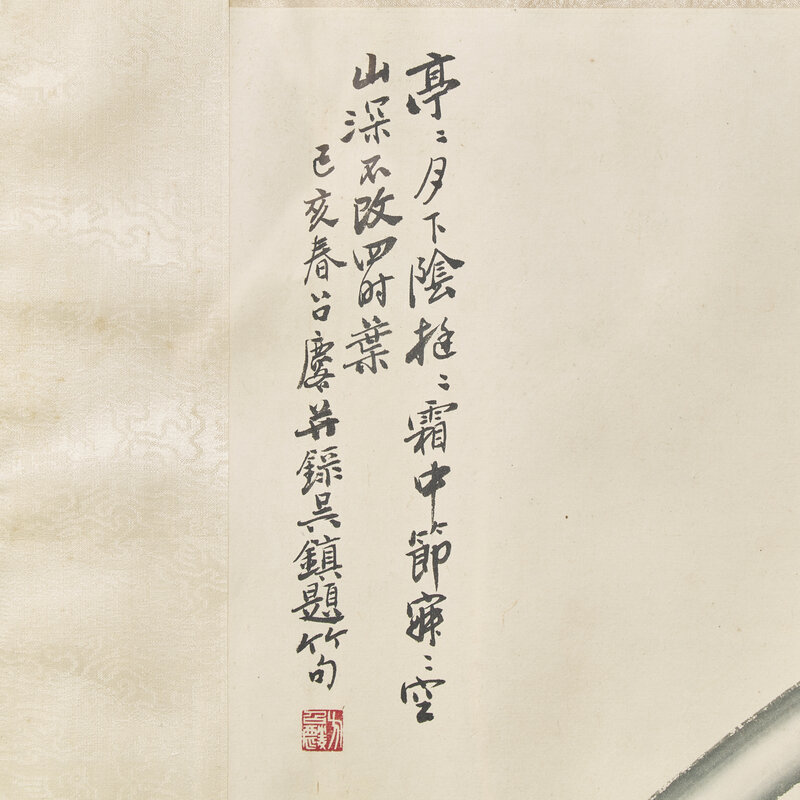 亭〻月下陰挺〻霜中節寂〻空
山深不改四时葉
己亥春召麐并錄吳鎮題竹句